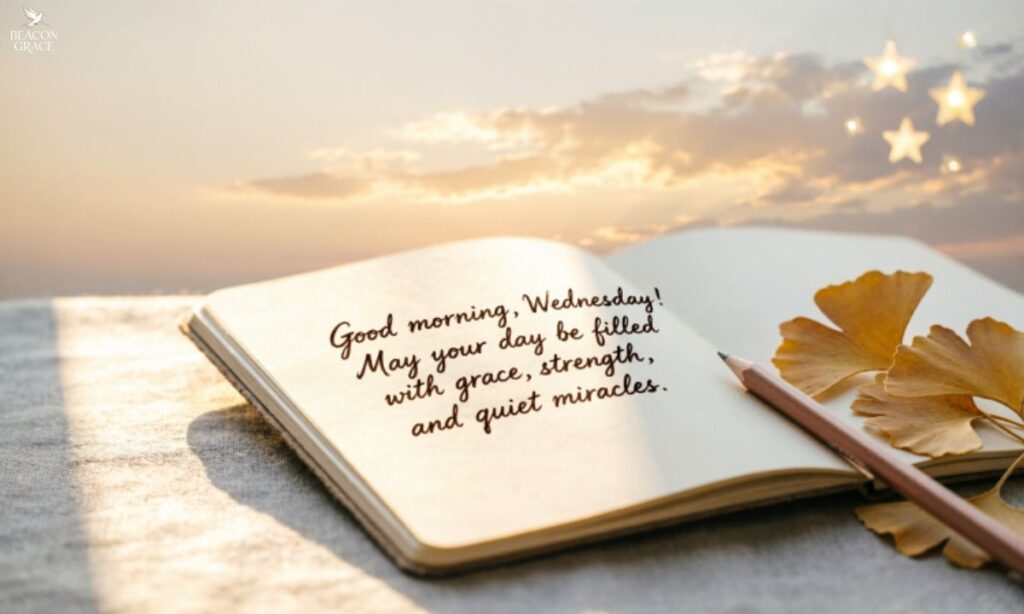 BEACON
GRACE
Good morning, Wednesday!
May your day be filled
with grace, strength,
and quiet miracles.